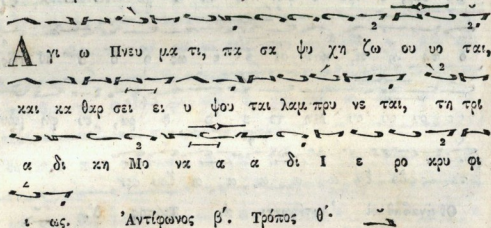 Α γι ω Πνευ μα τι, πα σα ψυ χη ζω ου υο ται,
και κα θαρ σει ει υ ψου ται λαμ πρυ νε ται, τη τρι
α δι κη Μο να α α δι Ι ε ρο κρυ φι
ι ως. Ἀντίφωνος β΄. Τρόπος θ΄.